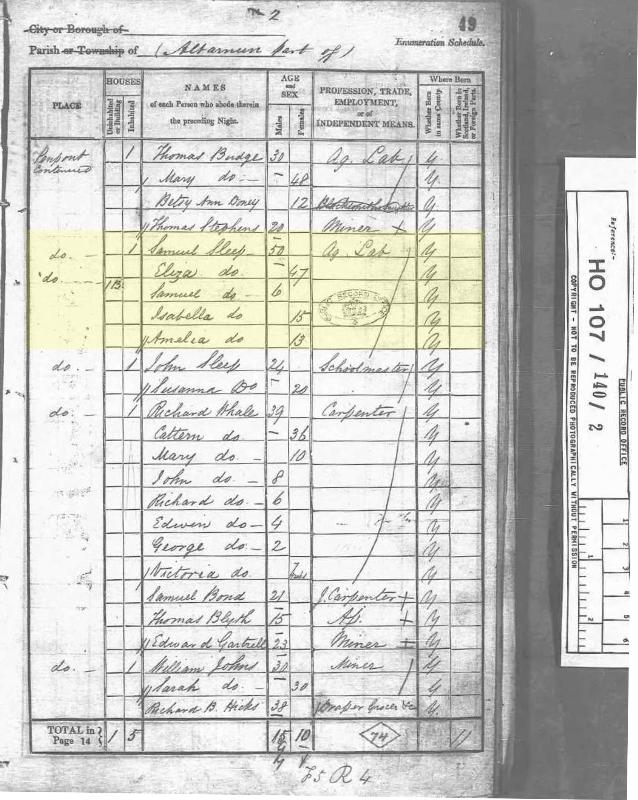 2
49
City or Borough of
Parish or Township of (Altarnun Part of)
Enumeration Schedule.
PLACE
HOUSES
Uninhabited or Building
Inhabited
NAMES
of each Person who abode therein
the preceding Night.
AGE and SEX
Males
Females
PROFESSION, TRADE,
EMPLOYMENT,
or of
INDEPENDENT MEANS.
Where Born
Whether Born in same County.
Whether Born in Scotland, Ireland, or Foreign Parts.
Penpont 1 Thomas Budge 30 Ag. Lab Y
Continued Mary do. 48 Y
Betsy Ann Doney 12 Y
Thomas Stephens 20 Miner + Y
do. 1 Samuel Sleep 50 Ag. Lab Y
do. 1 B. Eliza do. 47 Y
Samuel do 6 Y
Isabella do 15 Y
Amelia do 13 Y
do. 1 John Sleep 24 Schoolmaster Y
Susanna Do 20 Y
do. 1 Richard Whale 39 Carpenter Y
Cattern do. 36 Y
Mary do 10 Y
John do 8 Y
Richard do. 6 Y
Edwin do 4 Y
George do. 2 Y
Victoria do. 7 Y
Samuel Bond 21 J. Carpenter + Y
Thomas Blyth 15 Ap. + Y
Edward Gartrell 23 Miner + Y
do. 1 William Johns 30 Miner Y
Sarah do. 30 Y
Richard B. Hicks 38 Draper Grocer &c Y.
TOTAL in Page 14 1 5 15 10 74
F5 R 4
Reference:-
HO 107 / 140 / 2
PUBLIC RECORD OFFICE
COPYRIGHT - NOT TO BE REPRODUCED PHOTOGRAPHICALLY WITHOUT PERMISSION
1 2 3 4 5 6
1 2